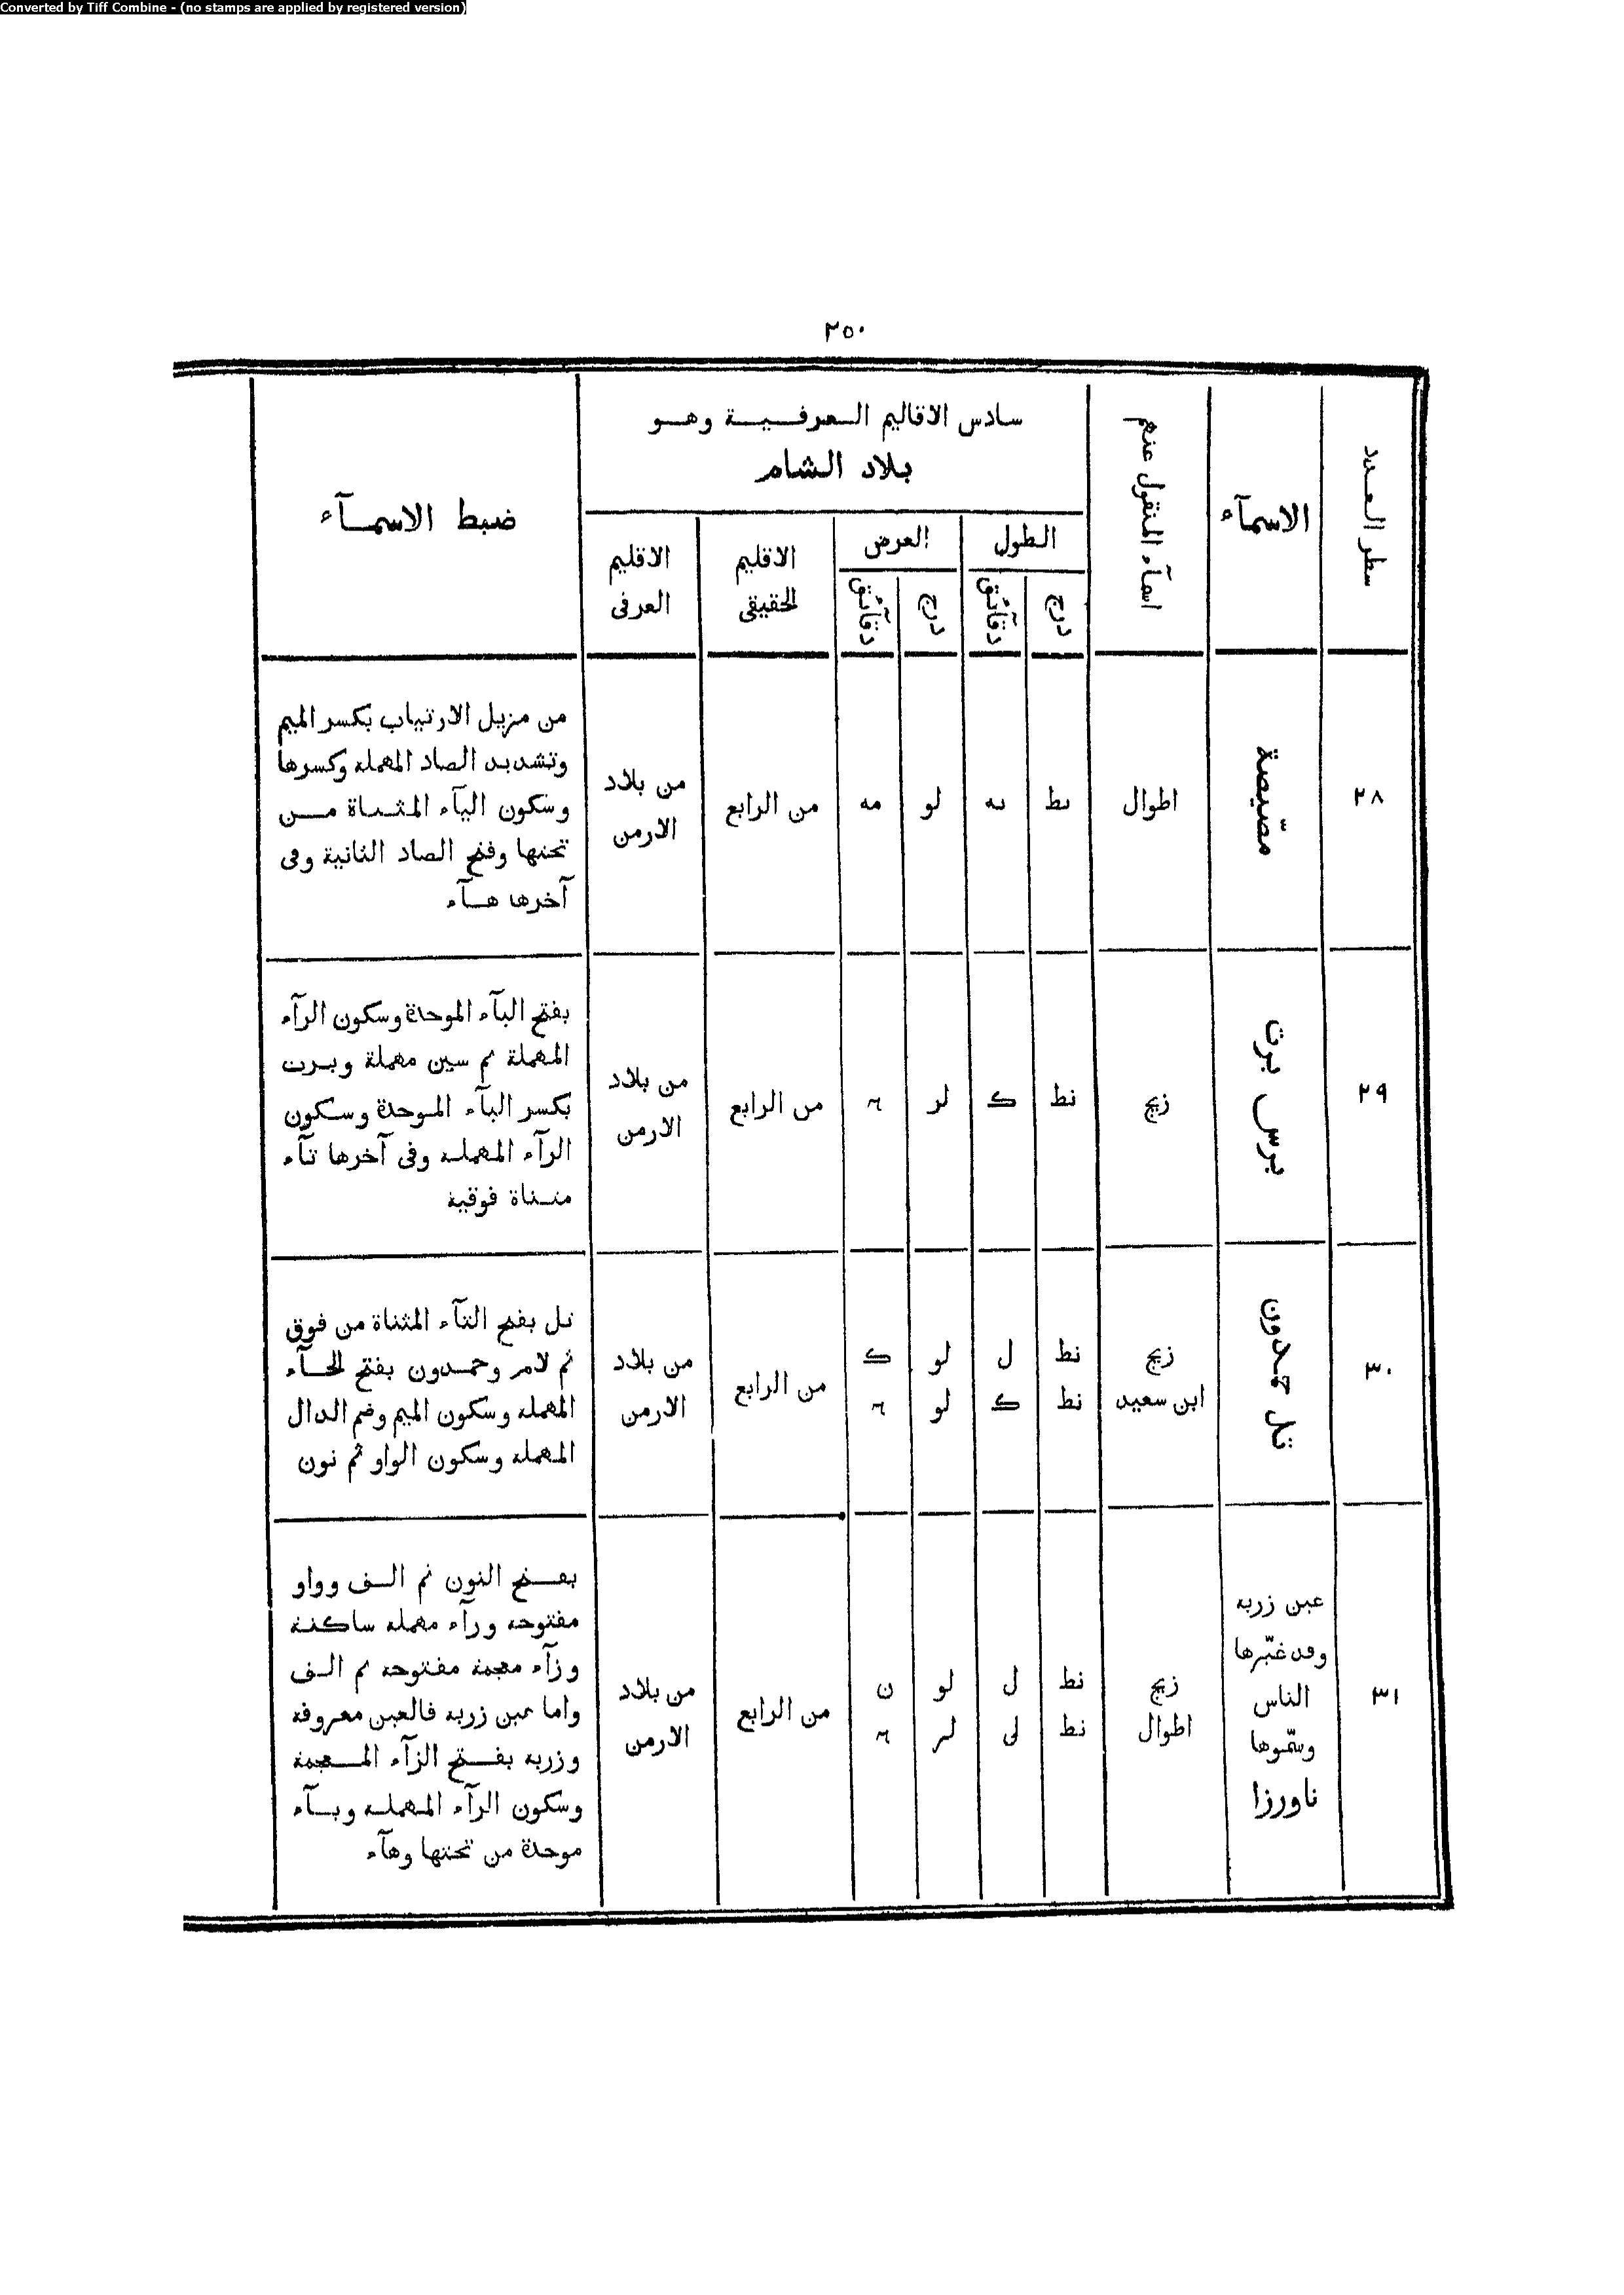 Converted by Tiff Combine - (no stamps are applied by registered version)
٢٥٠
سطر العدد
الاسمآء
اسمآء المنقول عنهم
سادس الاقاليم العرفية وهو
بلاد الشام
الطول
العرض
درج
دقآئق
درج
دقآئق
الاقليم
الحقيقى
الاقليم
العرفى
ضبط الاسمآء
٢٨
مصّيصة
اطوال
نط
نه
لو
مه
من الرابع
من بلاد
الارمن
من مزيل الارتياب بكسر الميم
وتشديد الصاد المهملة وكسرها
وسكون اليآء المثناة من
تحتها وفتح الصاد الثانية وفى
آخرها هآء
٢٩
برس برت
زيج
نط
ك
لز
٦
من الرابع
من بلاد
الارمن
بفتح البآء الموحدة وسكون الرآء
المهملة ثم سين مهملة وبرت
بكسر البآء الموحدة وسكون
الرآء المهملة وفى آخرها تآء
مثناة فوقية
٣٠
تل حمدون
زيج
ابن سعيد
نط
نط
ل
ك
لو
لو
ك
٦
من الرابع
من بلاد
الارمن
تل بفتح التآء المثناة من فوق
ثم لام وحمدون بفتح الحآء
المهملة وسكون الميم وضم الدال
المهملة وسكون الواو ثم نون
٣١
عين زربه
وقد غيّرها
الناس
وسمّوها
ناورزا
زيج
اطوال
نط
نط
ل
لى
لو
لز
ن
٦
من الرابع
من بلاد
الارمن
بفتح النون ثم الف وواو
مفتوحة ورآء مهملة ساكنة
وزآء معجمة مفتوحة ثم الف
واما عين زربه فالعين معروفة
وزربه بفتح الزآء المعجمة
وسكون الرآء المهملة وبآء
موحدة من تحتها وهآء